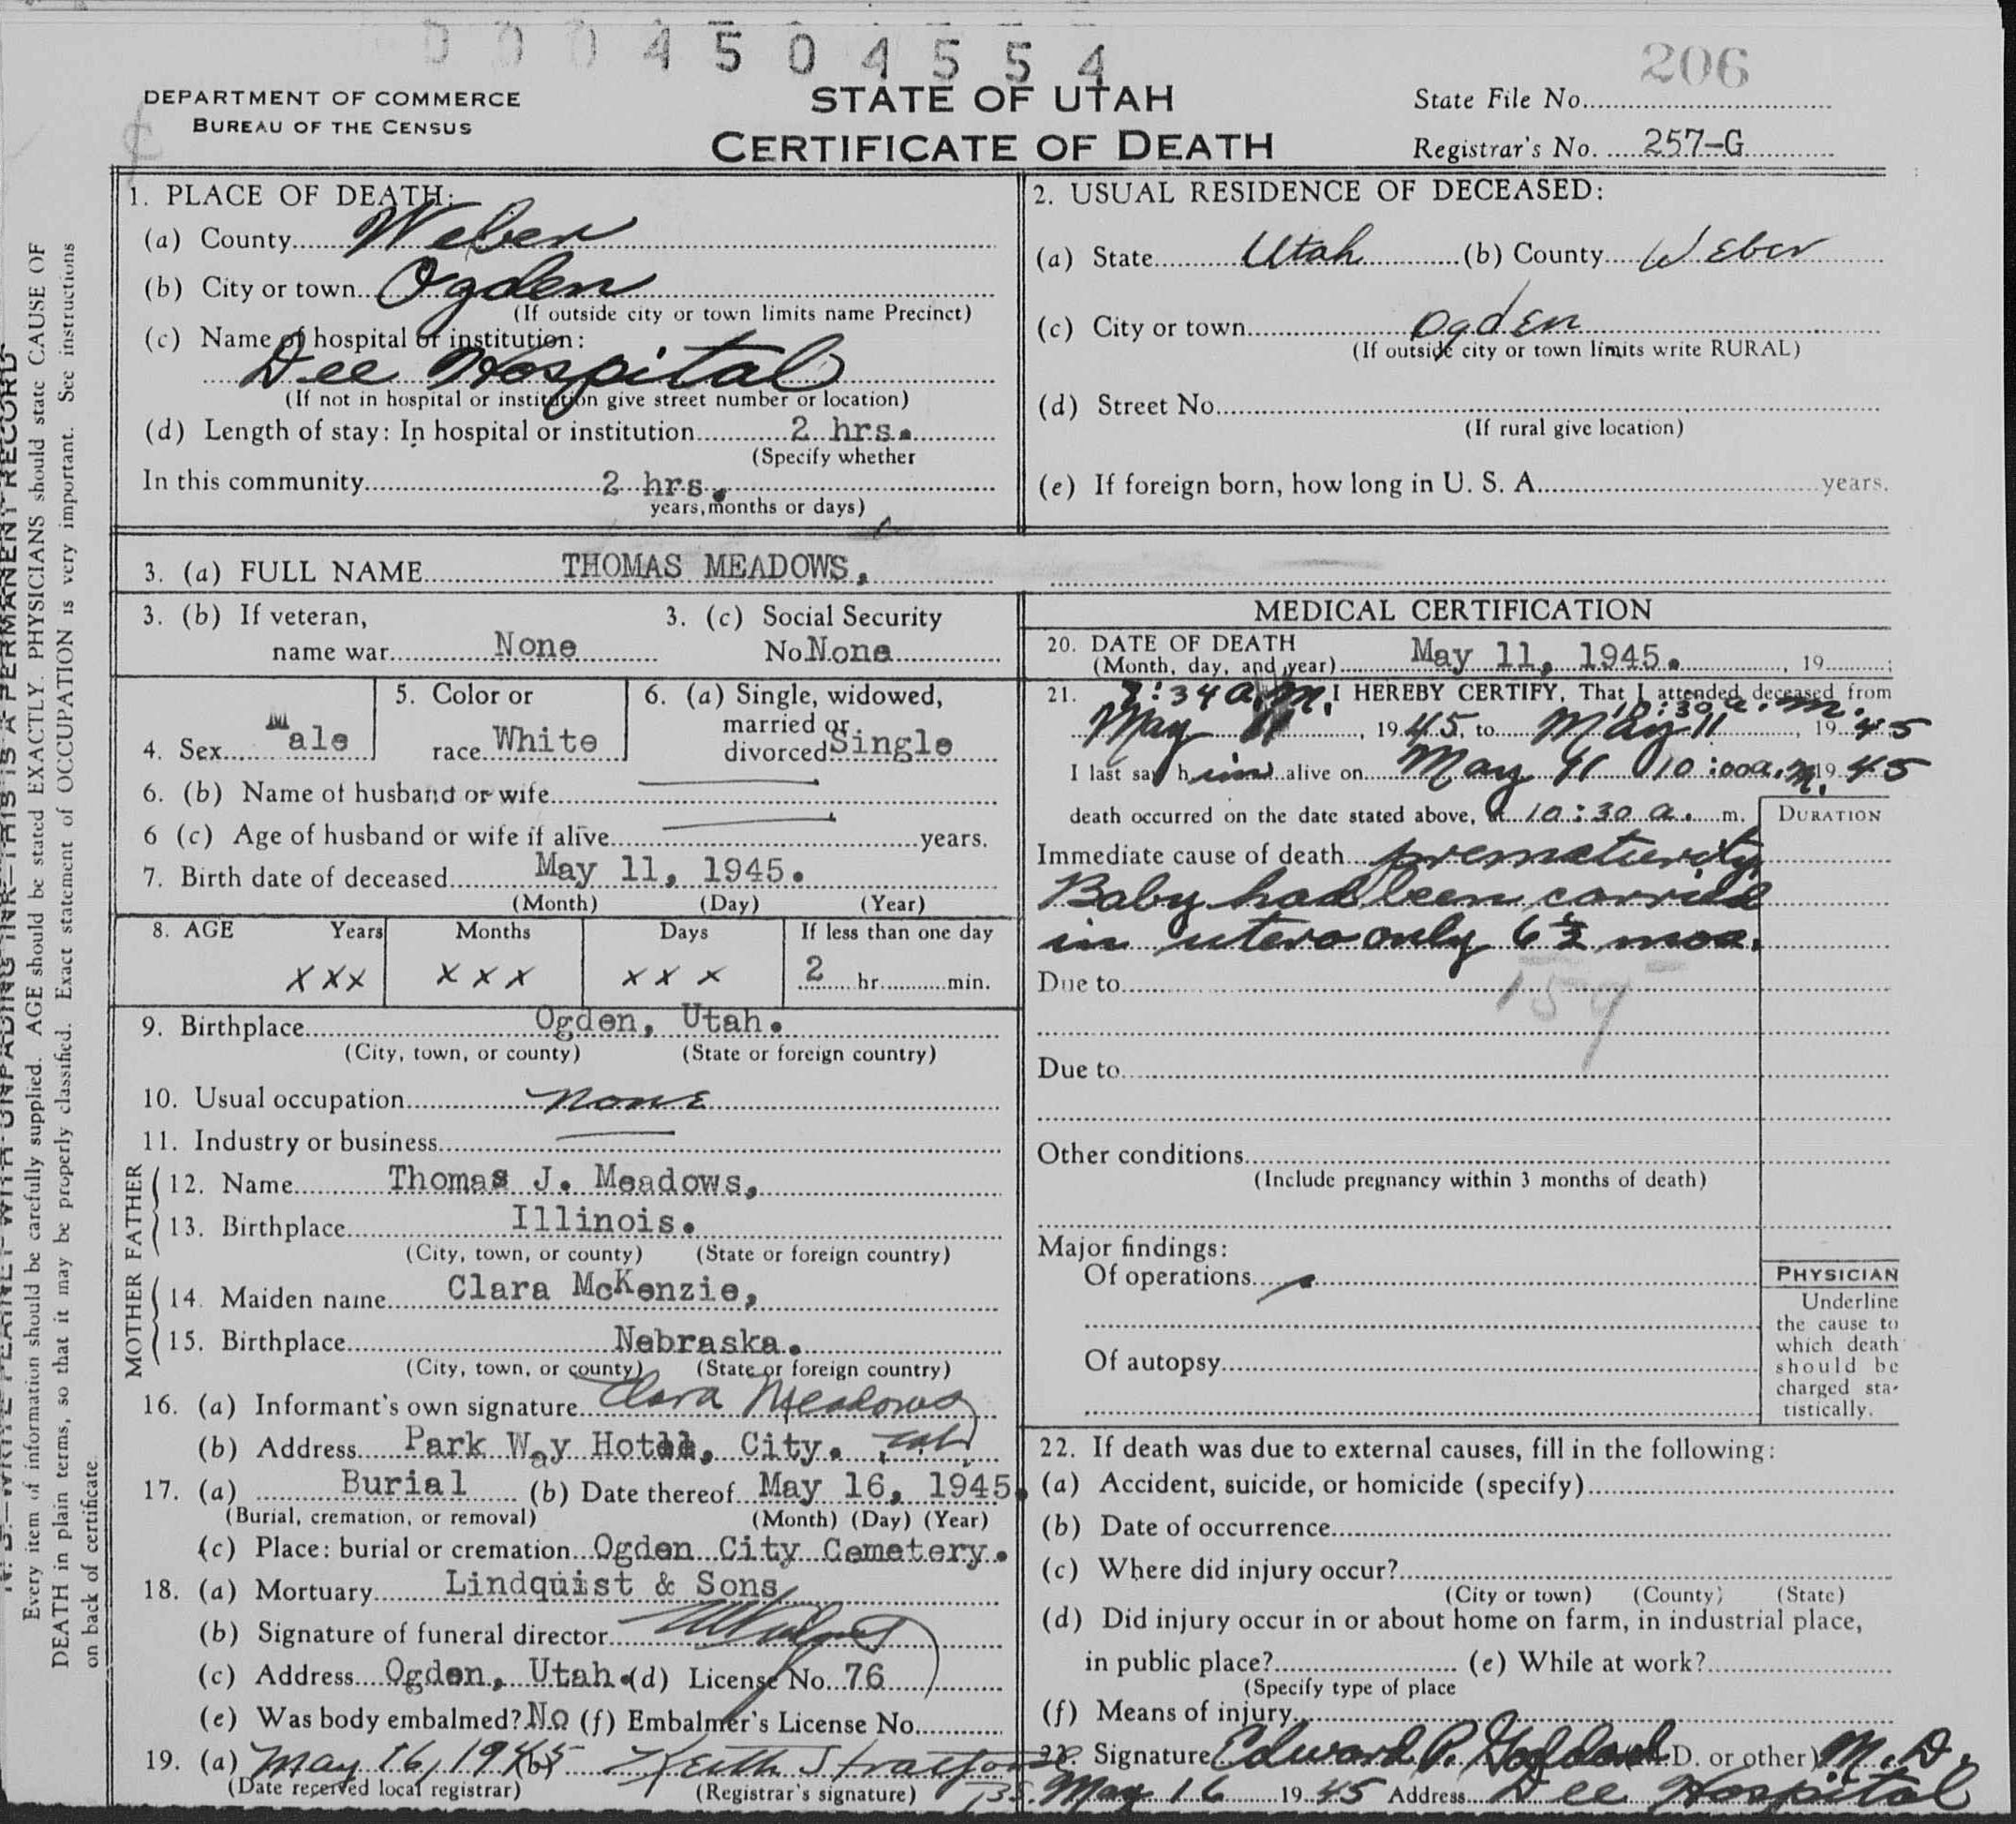 0 0 0 4 5 0 4 5 5 4
206
DEPARTMENT OF COMMERCE
BUREAU OF THE CENSUS
STATE OF UTAH
CERTIFICATE OF DEATH
State File No.
Registrar's No. 257-G
1. PLACE OF DEATH:
(a) County Weber
(b) City or town Ogden
(If outside city or town limits name Precinct)
(c) Name of hospital or institution:
Dee Hospital
(If not in hospital or institution give street number or location)
(d) Length of stay: In hospital or institution 2 hrs.
(Specify whether
In this community 2 hrs.
years, months or days)
2. USUAL RESIDENCE OF DECEASED:
(a) State Utah (b) County Weber
(c) City or town Ogden
(If outside city or town limits write RURAL)
(d) Street No.
(If rural give location)
(e) If foreign born, how long in U. S. A. years.
3. (a) FULL NAME THOMAS MEADOWS,
3. (b) If veteran,
name war None
3. (c) Social Security
No None
4. Sex Male
5. Color or
race White
6. (a) Single, widowed,
married or
divorced Single
6. (b) Name of husband or wife
6 (c) Age of husband or wife if alive years.
7. Birth date of deceased May 11, 1945.
(Month) (Day) (Year)
8. AGE Years Months Days If less than one day
XXX XXX XXX 2 hr. min.
9. Birthplace Ogden, Utah.
(City, town, or county) (State or foreign country)
10. Usual occupation None
11. Industry or business
FATHER
12. Name Thomas J. Meadows,
13. Birthplace Illinois.
(City, town, or county) (State or foreign country)
MOTHER
14. Maiden name Clara McKenzie,
15. Birthplace Nebraska.
(City, town, or county) (State or foreign country)
16. (a) Informant's own signature Clara Meadows
(b) Address Park Way Hotel, City.
17. (a) Burial (b) Date thereof May 16, 1945.
(Burial, cremation, or removal) (Month) (Day) (Year)
(c) Place: burial or cremation Ogden City Cemetery.
18. (a) Mortuary Lindquist & Sons
(b) Signature of funeral director
(c) Address Ogden, Utah. (d) License No. 76
(e) Was body embalmed? No (f) Embalmer's License No.
19. (a) May 16, 1945 (b) Keith
(Date received local registrar) (Registrar's signature)
MEDICAL CERTIFICATION
20. DATE OF DEATH
(Month, day, and year) May 11, 1945. , 19 ;
21. 8:34 a.m. I HEREBY CERTIFY, That I attended deceased from
10:30 a.m.
May 11, 1945, to May 11, 1945
I last saw him alive on May 11 10:00 a.m. 1945
death occurred on the date stated above, at 10:30 a.m.
DURATION
Immediate cause of death prematurity
Baby had been carried
in utero only 6 1/2 mos.
Due to
159
Due to
Other conditions
(Include pregnancy within 3 months of death)
Major findings:
Of operations
Of autopsy
PHYSICIAN
Underline
the cause to
which death
should be
charged sta-
tistically.
22. If death was due to external causes, fill in the following:
(a) Accident, suicide, or homicide (specify)
(b) Date of occurrence
(c) Where did injury occur?
(City or town) (County) (State)
(d) Did injury occur in or about home on farm, in industrial place,
in public place? (e) While at work?
(Specify type of place
(f) Means of injury
23. Signature Edward P. (M.D. or other) M.D.
May 16 1945 Address Dee Hospital
N. B.—WRITE PLAINLY WITH UNFADING INK—THIS IS A PERMANENT RECORD
Every item of information should be carefully supplied. AGE should be stated EXACTLY. PHYSICIANS should state CAUSE OF
DEATH in plain terms, so that it may be properly classified. Exact statement of OCCUPATION is very important. See instructions
on back of certificate.